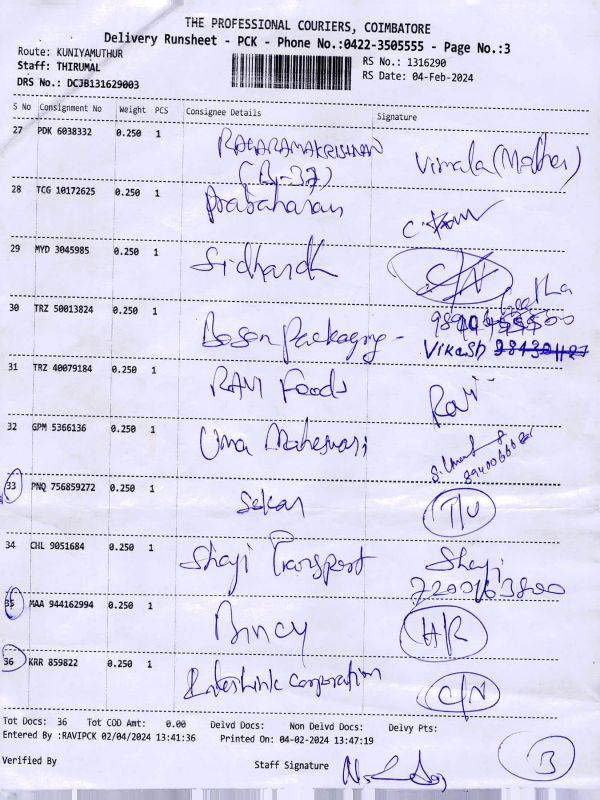 THE PROFESSIONAL COURIERS, COIMBATORE
Delivery Runsheet - PCK - Phone No.:0422-3505555 - Page No.:3
Route: KUNIYAMUTHUR
RS No.: 1316290
Staff: THIRUMAL
RS Date: 04-Feb-2024
DRS No.: DCJB131629003
S No Consignment No Weight PCS Consignee Details Signature
27 PDK 6038332 0.250 1 RAGARAMAKRISHNAN Vimala (Mother)
(B-37)
28 TCG 10172625 0.250 1 Prabaharan
29 MYD 3045985 0.250 1 Sidharth C/N
Geetha
30 TRZ 50013824 0.250 1 Boson Packaging -
Vikash
31 TRZ 40079184 0.250 1 RAVI Foods Ravi
32 GPM 5366136 0.250 1 Uma Maheswari
33 PNQ 756859272 0.250 1 Sekar T/U
34 CHL 9051684 0.250 1 Shaji Transport Shaji
7200163800
35 MAA 944162994 0.250 1 Bincy H/R
36 KRR 859822 0.250 1 Interlink Corporation C/N
Tot Docs: 36 Tot COD Amt: 0.00 Delvd Docs: Non Delvd Docs: Delvy Pts:
Entered By :RAVIPCK 02/04/2024 13:41:36 Printed On: 04-02-2024 13:47:19
Verified By Staff Signature
B